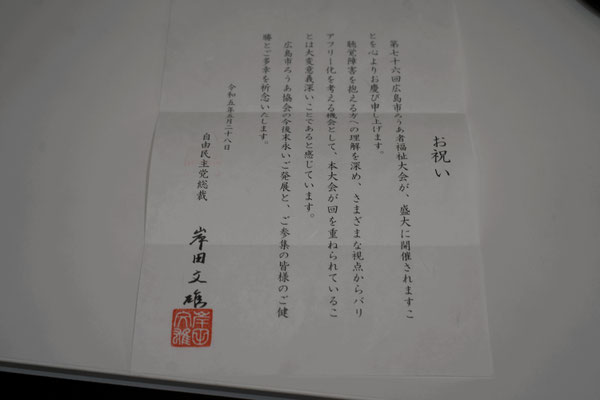 お祝い
第七十六回広島市ろうあ者福祉大会が、盛大に開催されますこ
とを心よりお慶び申し上げます。
聴覚障害を抱える方への理解を深め、さまざまな視点からバリ
アフリー化を考える機会として、本大会が回を重ねられているこ
とは大変意義深いことであると感じています。
広島市ろうあ協会の今後末永いご発展と、ご参集の皆様のご健
勝とご多幸を祈念いたします。
令和五年五月二十八日
自由民主党総裁
岸田文雄
岸田文雄